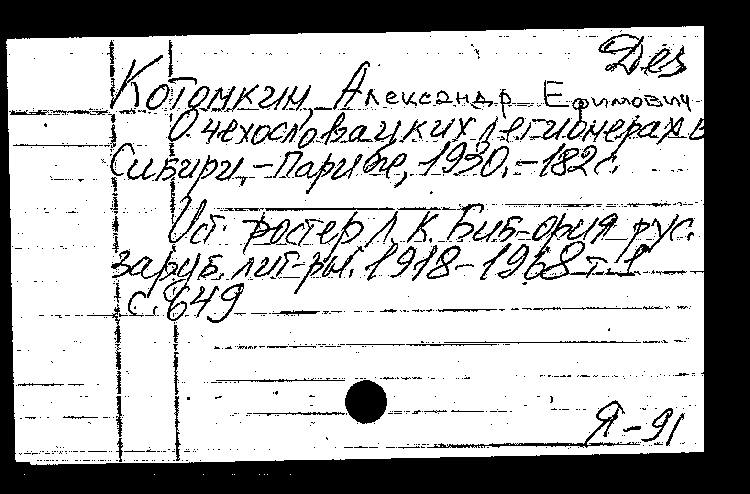 Дез
Котомкин, Александр Ефимович
О чехословацких легионерах в
Сибири, - Париже, 1930, - 182с.
Ист. ростер Л. К. Биб-фия рус.
заруб. лит-ры. 1918-1968 т. 1
с. 649
Я-91